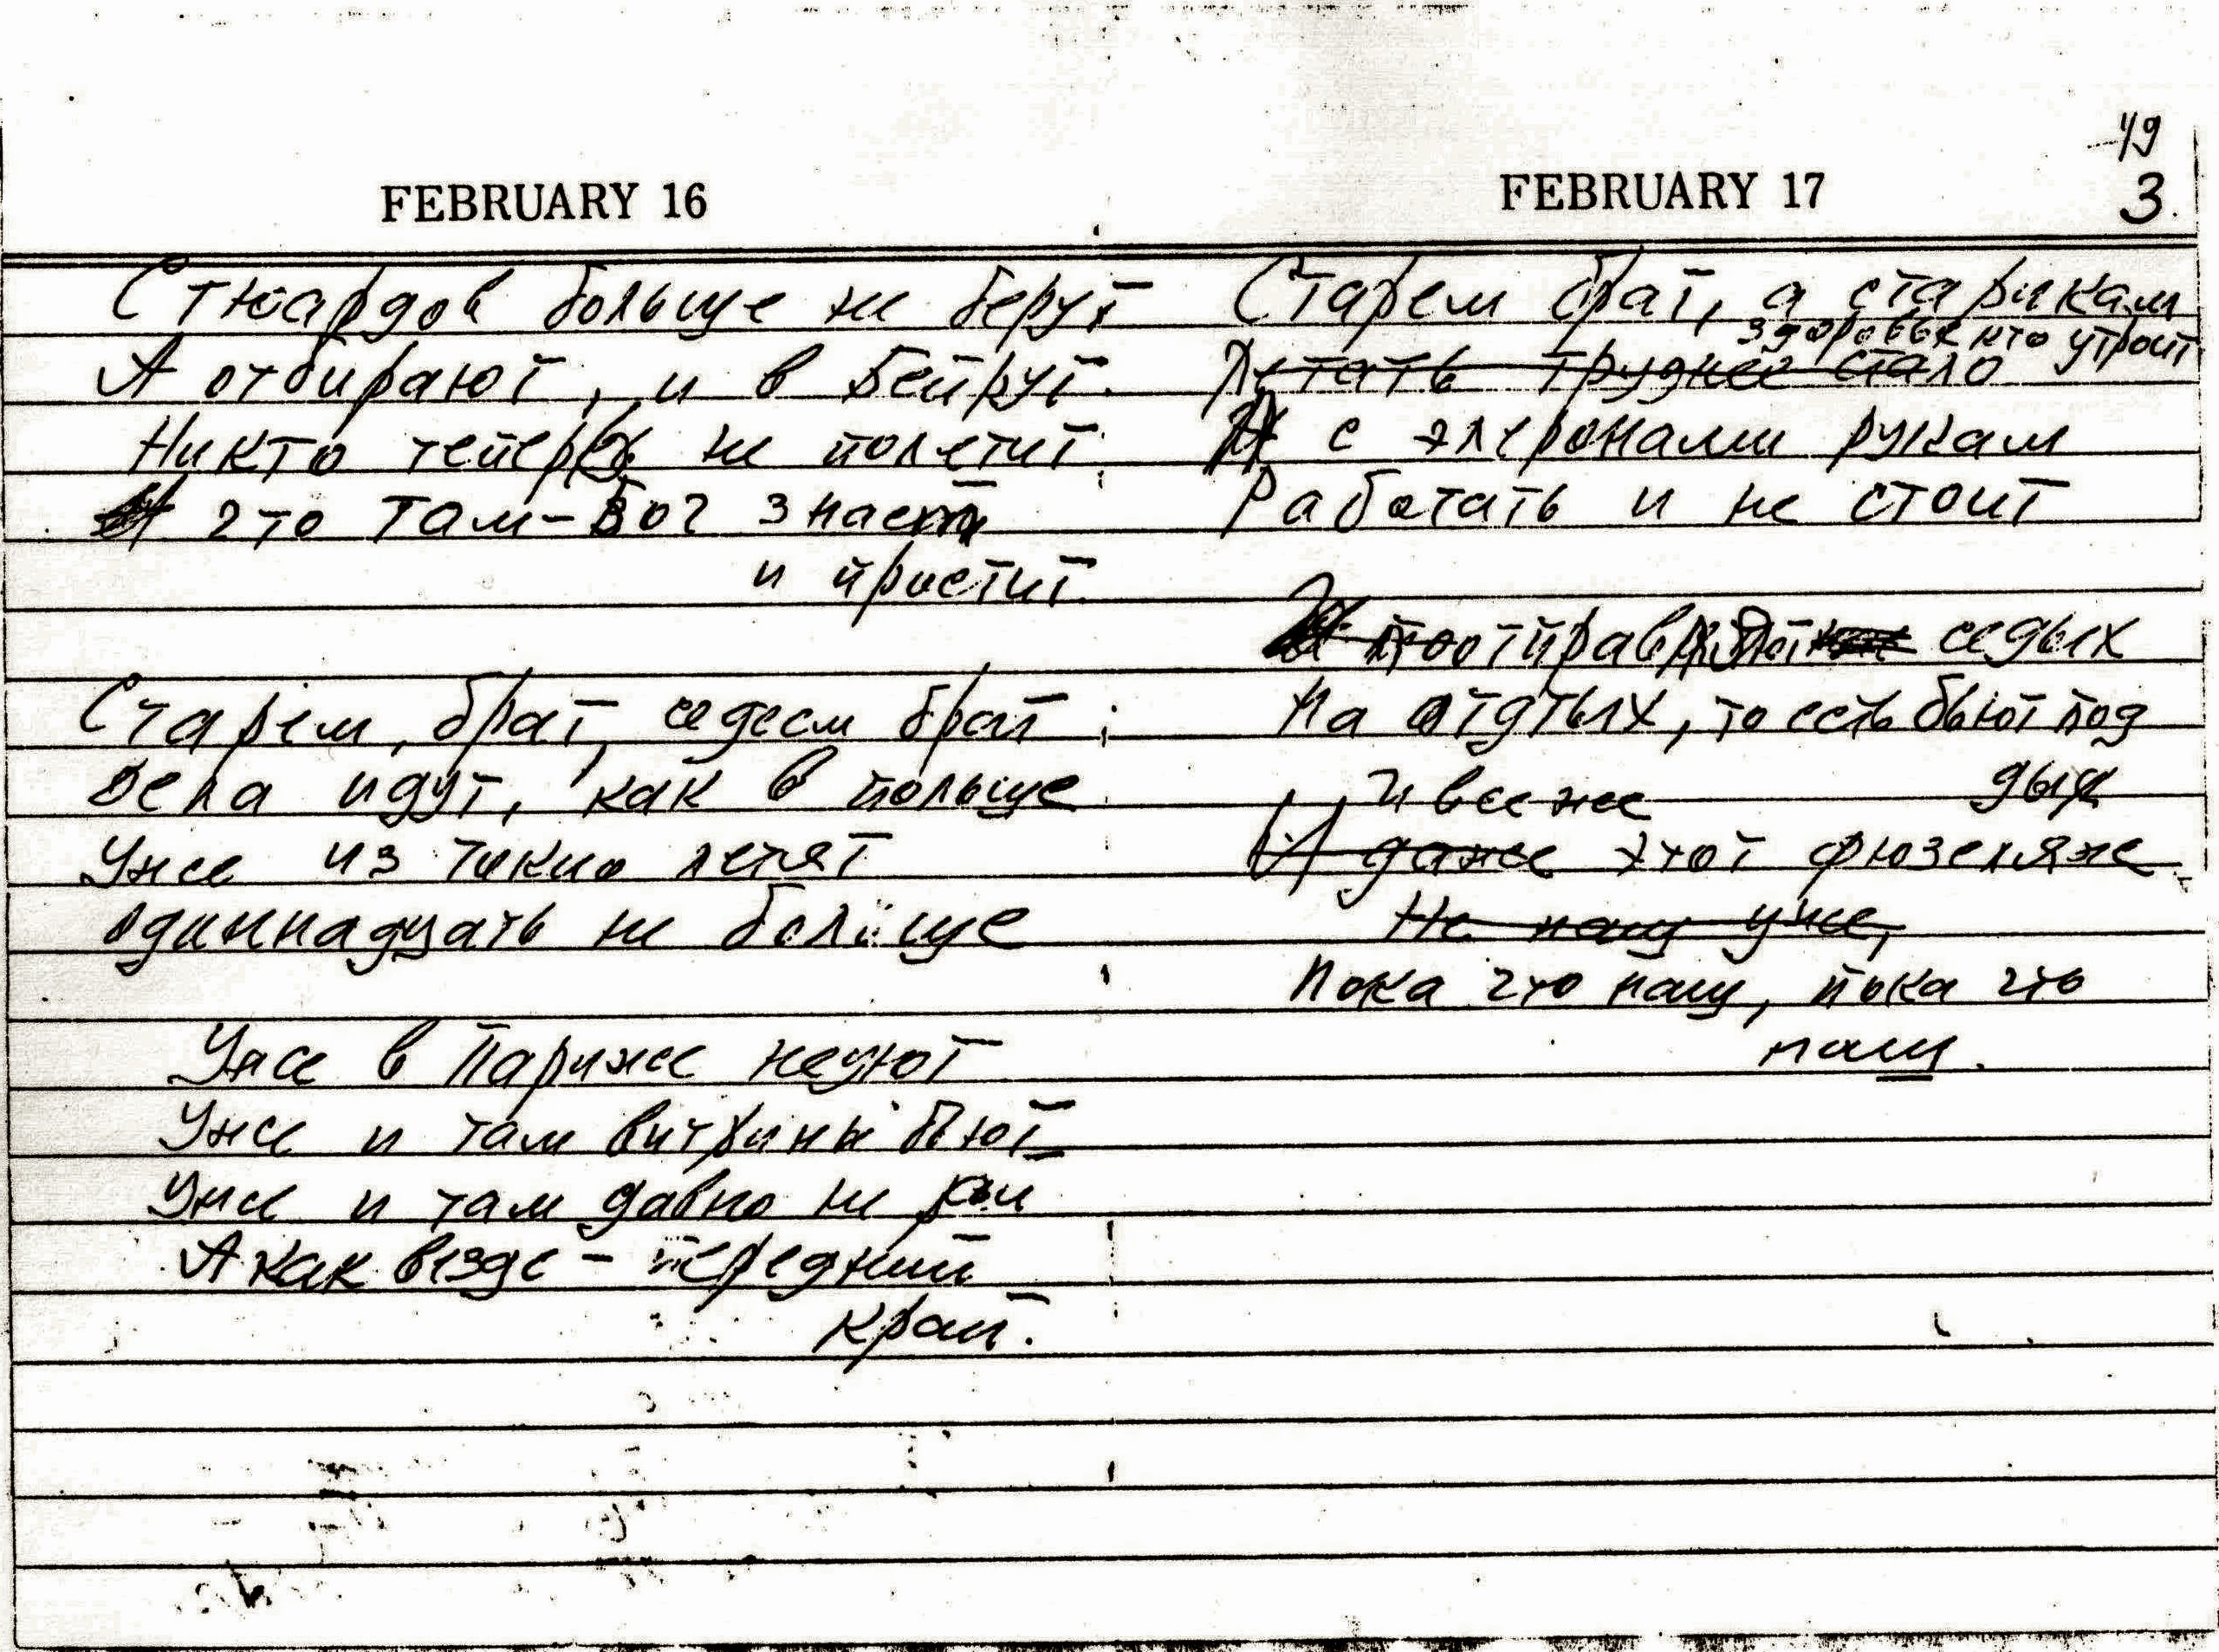 49
3.
FEBRUARY 16
Стюардов больше не берут
А отбирают, и в Бейрут
Никто теперь не полетит
что там – Бог знает
и простит.
Старем, брат, седеем брат
Дела идут, как в польше
Уже из токио летят
одиннадцать не больше
Уже в Париже неуют
Уже и там витрины бьют
Уже и там давно не рай
А как везде – передний
край.
FEBRUARY 17
Старем брат, а старикам
здоровье кто утроит
Летать труднее стало
с элеронами рукам
Работать и не стоит
отправляют седых
На отдтых, то есть бьют под
дых
И все же
И даже этот фюзеляж
Не наш уже,
Пока что наш, пока что
наш.